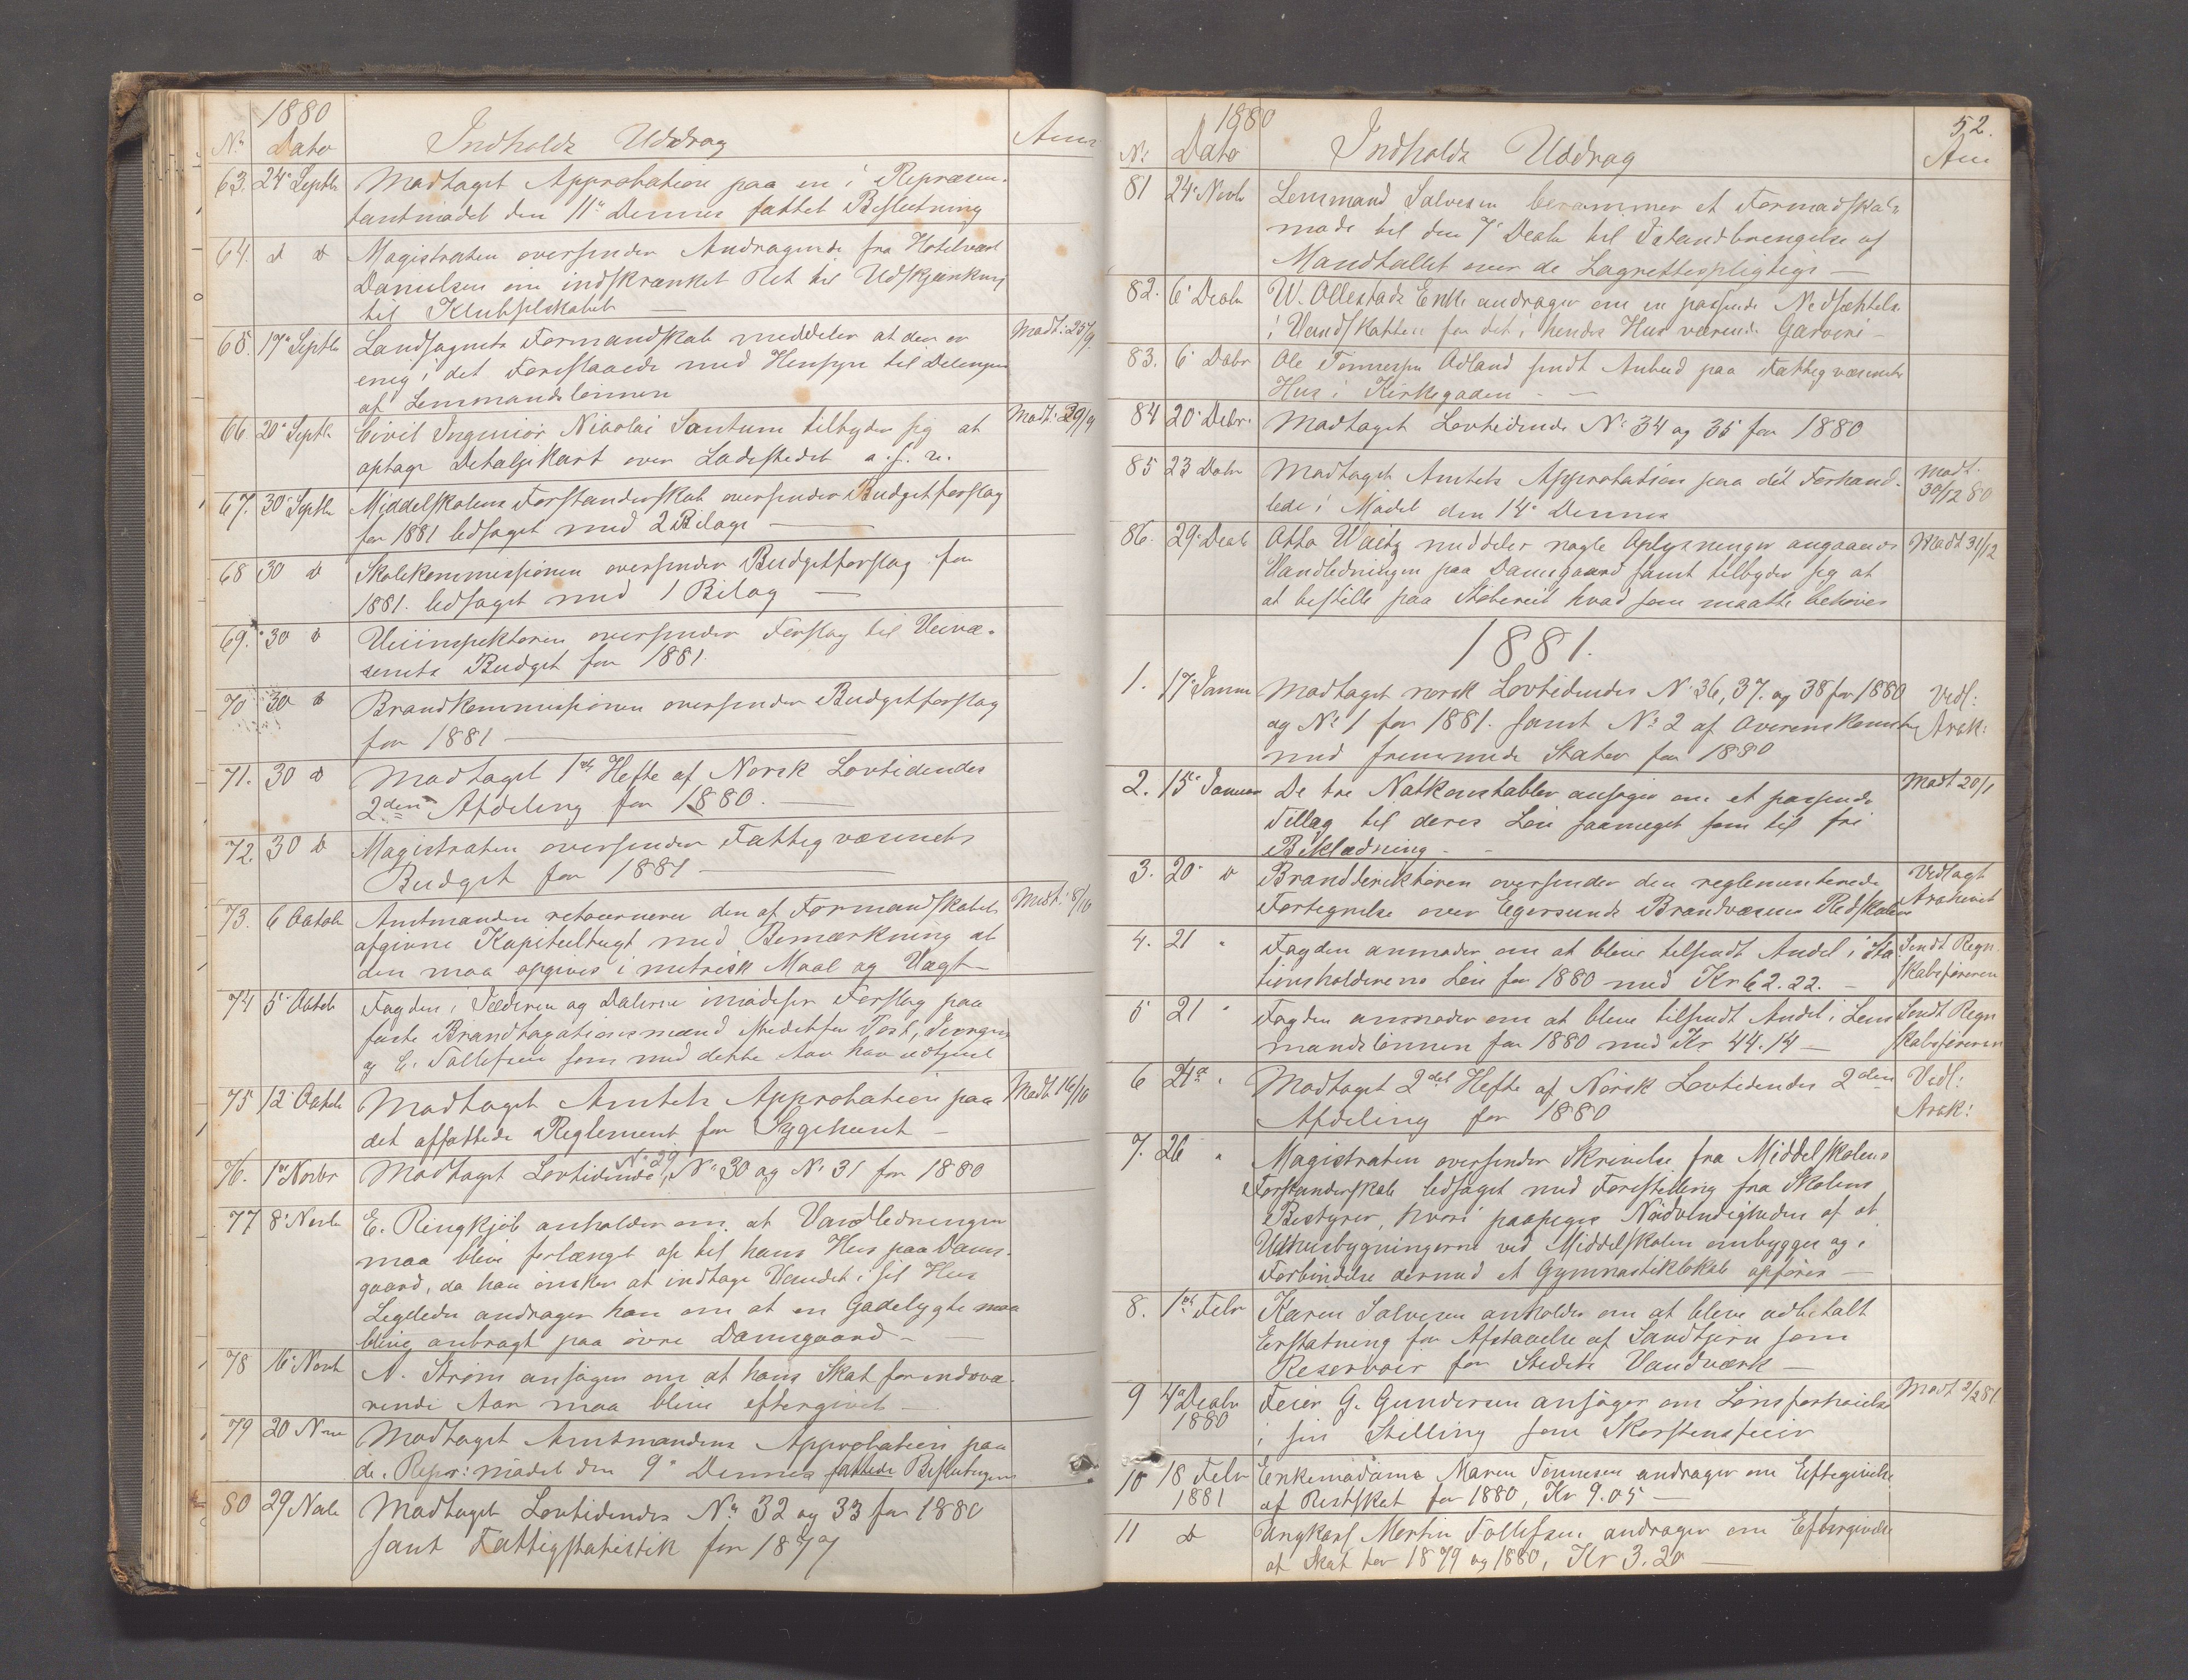 1880
Nr Dato Indholds Uddrag Anm
63. 24de Septbr Modtaget Approbation paa en i Repræsen-
tantmødet den 11te Dennes fattet Beslutning
64. d d Magistraten oversender Andragende fra Hotelvært
Danielsen om indskrænket Ret til Udskjænkning
til Klubselskabet —
65. 17de Septbr Landsognets Formandskab meddeler at den er Modt: 25/9
enig i det Foreslaaede med Hensyn til Delingen
af Lensmandslønnen
66. 20de Septbr Civil Ingeniør Nicolai Santum tilbyder sig at Modt: 29/9
optage Detaljekart over Ladestedet o. s. v.
67. 30te Septbr Middelskolens Forstanderskab oversender Budgetforslag
for 1881 ledsaget med 2 Bilage —
68 30 d Skolekommissionen oversender Budgetforslag for
1881. ledsaget med 1 Bilag —
69. 30 d Veiinspektøren oversender Forslag til Veivæ-
senets Budget for 1881.
70 30 d Brandkommissionen oversender Budgetforslag
for 1881 —
71. 30 d Modtaget 1ste Hefte af Norsk Lovtidendes
2den Afdeling for 1880. —
72. 30 d Magistraten oversender Fattigvæsenets
Budget for 1881 —
73. 6 Octobr Amtmanden retournerer den af Formandskabet Modt: 8/10
afgivne Kapitelstaxt med Bemærkning at
den maa opgives i metrisk Maal og Vægt —
74 5te Octobr Fogden i Jæderen og Dalerne imødeser Forslag paa
faste Brandtagationsmænd Istedetfor Post, Jørgens
og E. Tollefsen som med dette Aar har udtjent
75 12te Octobr Modtaget Amtets Approbation paa Modt 16/10
det affattede Reglement for Sygehuset —
76. 1ste Novbr Modtaget Lovtidende No 29, No 30 og No 31 for 1880
77 8de Novbr E. Ringkjøb anholder om at Vandledningen
maa blive forlænget op til hans Hus paa Dams-
gaard, da han ønsker at indtage Vandet i sit Hus
Ligeledes andrager han om at en Gadelygte maa
blive anbragt paa øvre Damsgaard —
78 16de Novbr N. Strøm ansøger om at hans Skat for indevæ-
rende Aar maa blive eftergivet —
79 20 Nov Modtaget Amtmandens Approbation paa
de i Repr: mødet den 9de Dennes fattede Beslutninger
80 29 Novbr Modtaget Lovtidendes No 32 og 33 for 1880
samt Fattigstatistik for 1877
1880 52.
Nr Dato Indholds Uddrag Anm
81 24de Novbr Lensmand Salvesen berammer et Formandskabs-
møde til den 7de Decbr til Istandbringelse af
Mandtallet over de Lagrettespligtige —
82. 6te Decbr W. Ollestads Enke andrager om en passende Nedsættelse
i Vandskatten for det i hendes Hus værende Garveri —
83. 6te Decbr Ole Tønnesen Adland sendt Anbud paa Fattigvæsenets
Hus i Kirkegaden — —
84 20de Decbr. Modtaget Lovtidende No 34 og 35 for 1880
85 23 Decbr Modtaget Amtets Approbation paa det Forhand- Modt.
lede i Mødet den 14de Dennes 30/12 80
86. 29de Decbr Otto Waitz meddeler nogle Oplysninger angaaende Modt 31/12
Vandledningen paa Damsgaard samt tilbyder sig at
at bestille paa Støberiet hvad som maatte behøves
1881.
1. 17de Januar Modtaget norsk Lovtidendes No 36, 37. og 38 for 1880 Vedl:
og No 1 for 1881. samt No 2 af Overenskomster Arck:
med fremmede Stater for 1880
2. 15de Januar De tre Natkonstabler ansøger om et passende Modt 20/1
Tillæg til deres Løn saameget som til fri
Beklædning — —
3. 20de d Branddirektøren oversender den reglementerede Vedlagt
Fortegnelse over Egersunds Brandvæsens Redskaber Archivet
4. 21 " Fogden anmoder om at blive tilsendt Andel i Sta- Sendt Regn
tionsholdernes Løn for 1880 med Kr 62.22. — skabsføreren
5 21 " Fogden anmoder om at blive tilsendt Andel i Lens Sendt Regn
mandslønnen for 1880 med Kr 44.14 — skabsføreren
6 21de " Modtaget 2det Hefte af Norsk Lovtidendes 2den Vedl:
Afdeling for 1880 Arck:
7. 26 " Magistraten oversender Skrivelse fra Middelskolens
Forstanderskab ledsaget med Forestilling fra Skolens
Bestyrer, hvori paapeges Nødvendigheden af at
Udhusbygningerne ved Middelskolen ombygges og i
Forbindelse dermed et Gymnastiklokale opføres —
8. 1ste Febr Karen Salvesen anholder om at blive udbetalt
Erstatning for Afstaaelse af Sandtjern som
Reservoir for Stedets Vandværk —
9 4de Decbr Feier G. Gundersen ansøger om Lønsforhøielse Modt 2/2 81
1880 i sin Stilling som Skorstensfeier
10 18 Febr Enkemadame Maren Tønnesen andrager om Eftergivelse
1881 af Restskat for 1880, Kr 9.05 —
11 d Ungkarl Martin Tollefsen andrager om Eftergivelse
af Skat for 1879 og 1880, Kr 3.20 —